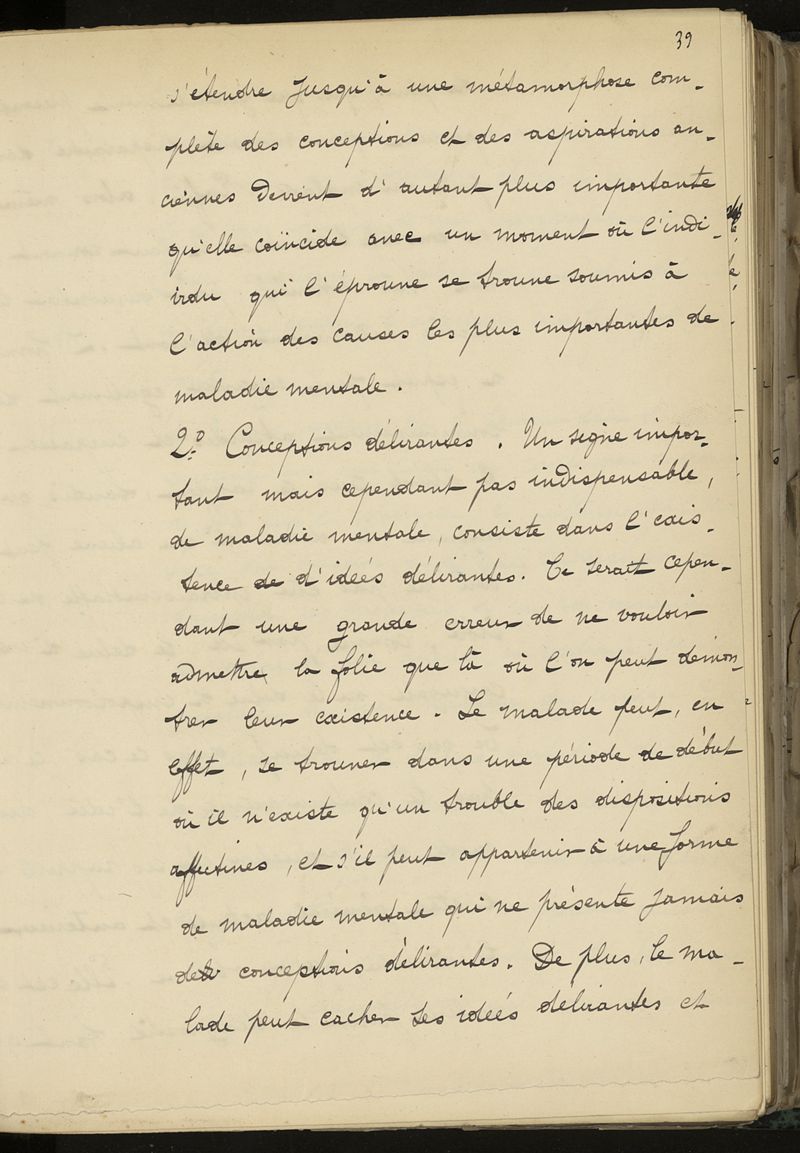 39
s'étendre jusqu'à une métamorphose com-
plète des conceptions et des aspirations an-
ciennes devient d'autant plus importante
qu'elle coïncide avec un moment où l'indi-
vidu qui l'éprouve se trouve soumis à
l'action des causes les plus importantes de
maladie mentale.
2º Conceptions délirantes. Un signe impor-
tant mais cependant pas indispensable,
de maladie mentale, consiste dans l'exis-
tence de d'idées délirantes. Ce serait cepen-
dant une grande erreur de ne vouloir
admettre la folie que là où l'on peut démon-
trer leur existence. Le malade peut, en
effet, se trouver dans une période de début
où il n'existe qu'un trouble des dispositions
affectives, et s'il peut appartenir à une forme
de maladie mentale qui ne présente jamais
de conceptions délirantes. De plus, le ma-
lade peut cacher ses idées délirantes et